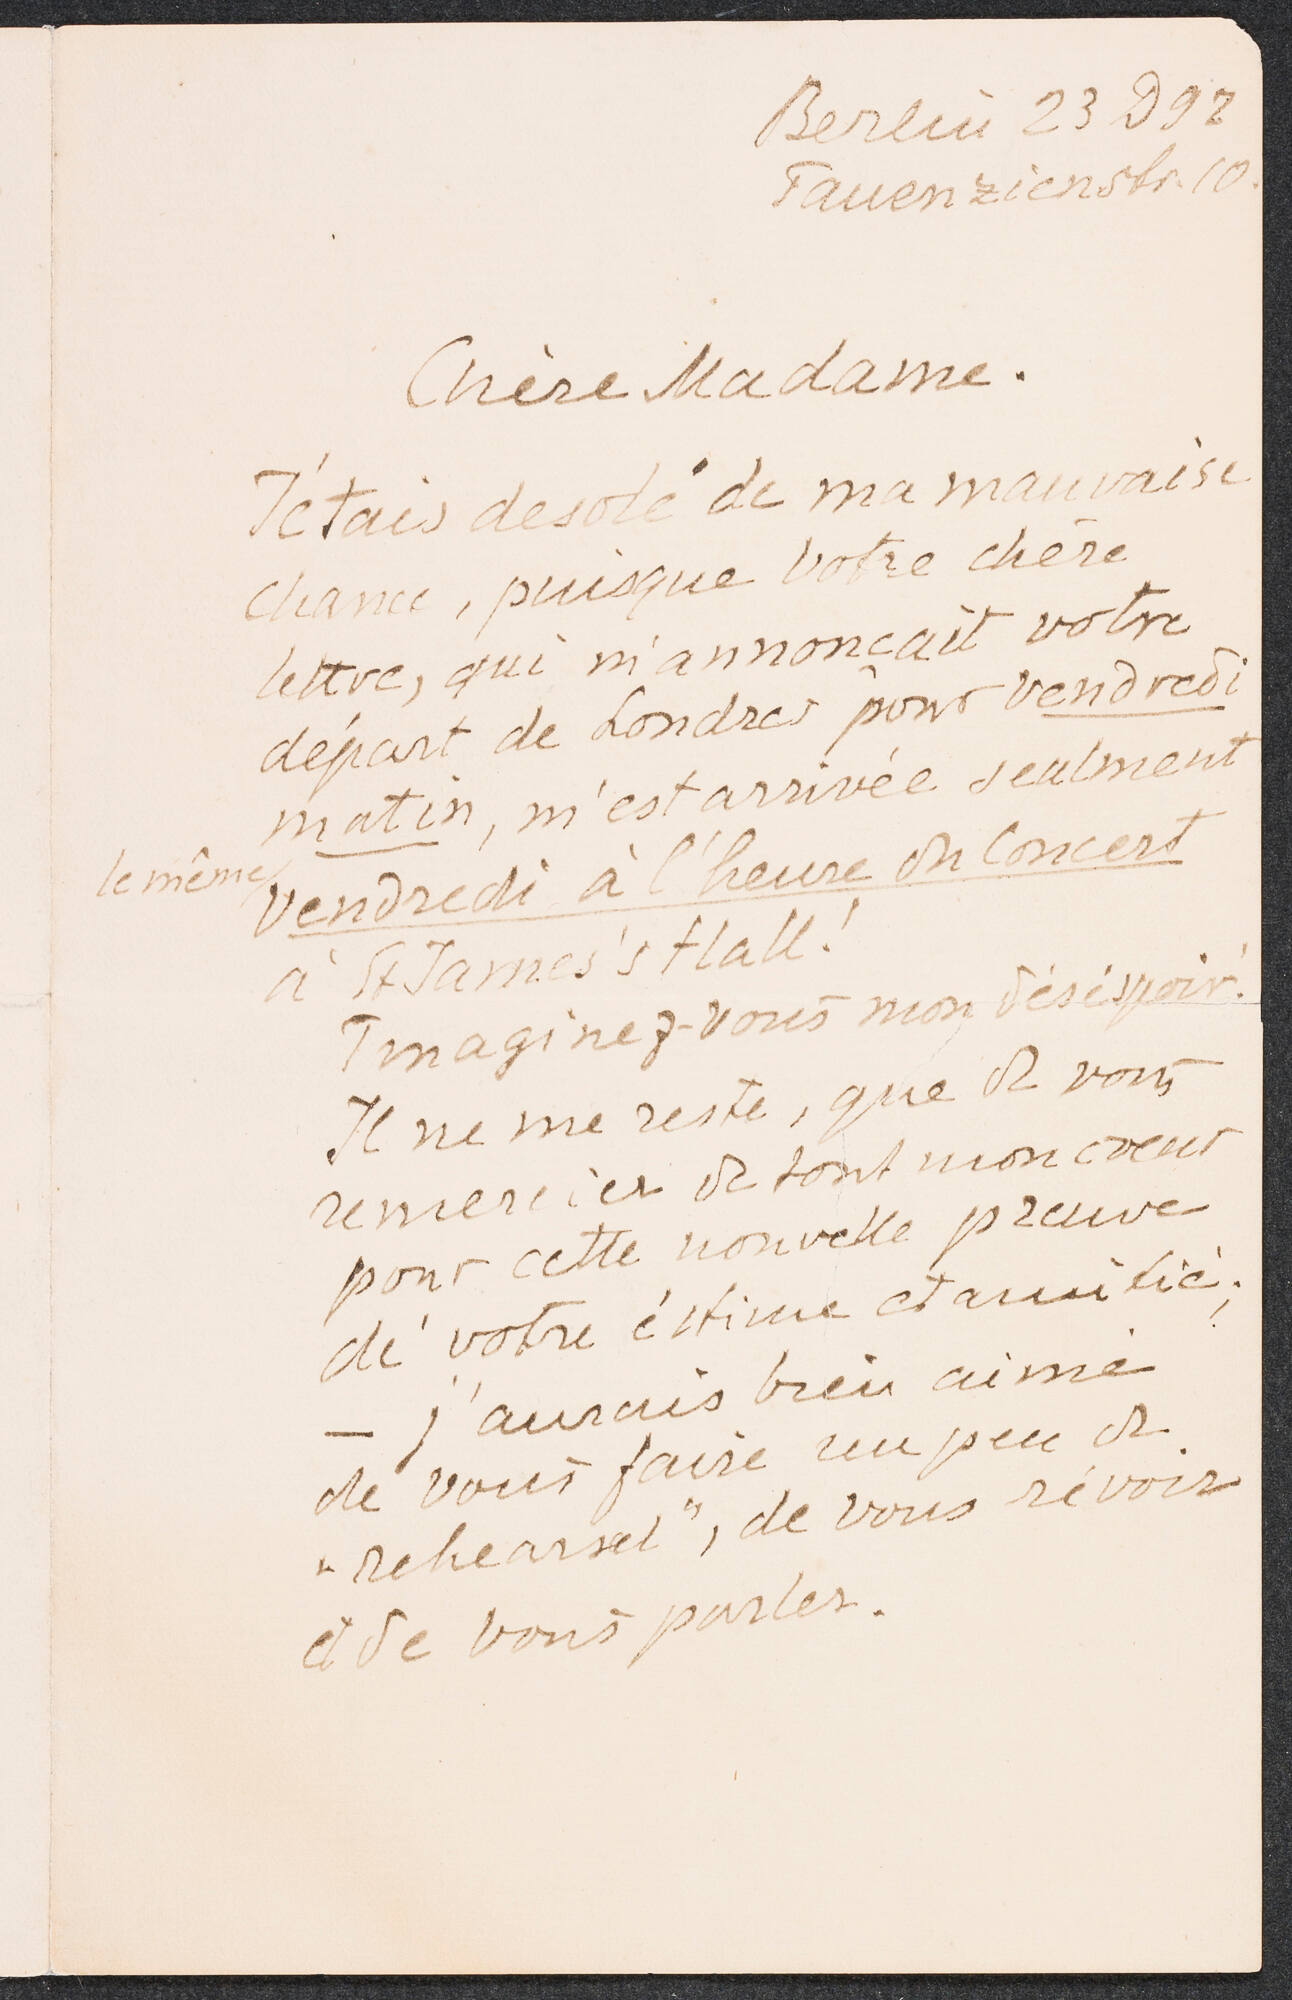 Berlin 23 D 97
Tauenzienstr. 10.
Chère Madame.
J'étais desolé de ma mauvaise
chance, puisque votre chère
lettre, qui m'annonçait votre
départ de Londres pour vendredi
matin, m'est arrivée seulment
le même vendredi à l'heure du Concert
à St James's Hall!
Imaginez-vous mon désespoir!
Il ne me reste, que de vous
remercier de tout mon coeur
pour cette nouvelle preuve
dé votre éstime et amitié;
— j'aurais bien aimé
de vous faire un peu de
"rehearsel", de vous révoir
et de vous parler.